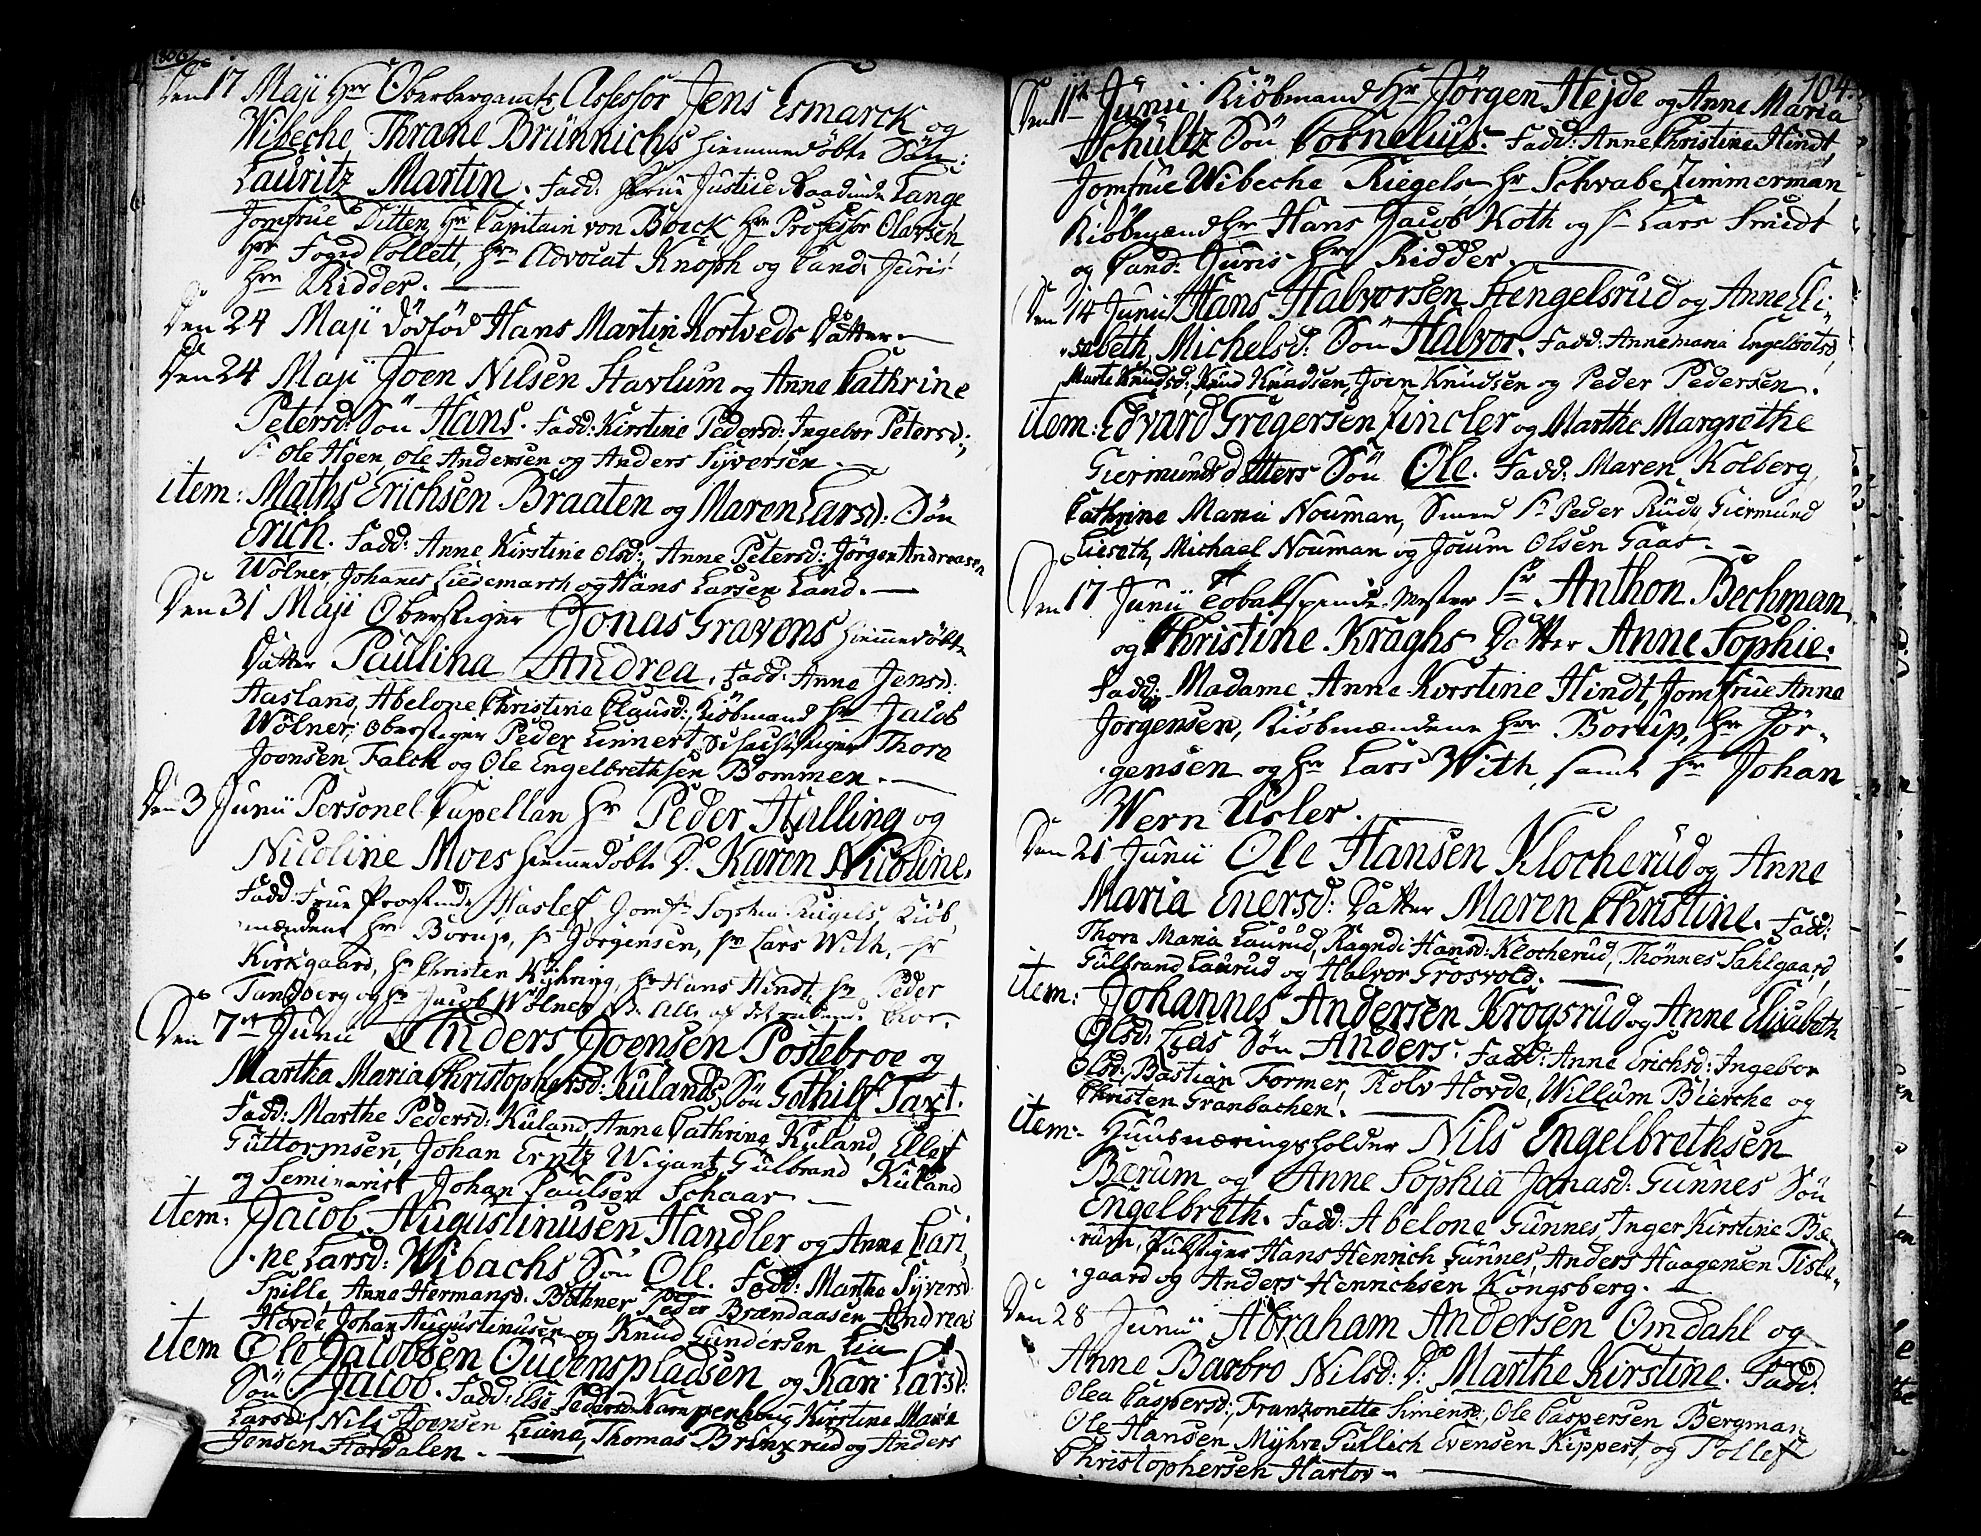 1806
Den 17 Maji Hrr Oberbergamts Assessor Jens Esmarck og
Wibeche Thrane Brünnichs hiemmedøbte Søn:
Lauritz Martin. Fadd: Frue Justice Raadinde Lange
Jomfrue Ditten, Hr Capitain von Boeck Hrr Professor Olavsen
Hrr Foged Collett, Hrr Advocat Knoph og Cand: Juris
Hrr Ridder.
Den 24 Maji Dødfød Hans Martin Kortveds Datter.
Den 24 Maji Joen Nilsen Stavlum og Anne Cathrine
Petersd: Søn Hans. Fadd: Kirstine Pedersd: Ingebor Petersd:,
Sr Ole Hoen, Ole Andersen og Anders Syversen.
item: Maths Erichsen Braaten og Maren Larsd: Søn
Erich. Fadd: Anne Kirstine Olsd:, Anne Petersd: Jørgen Andreasen
Wølner, Johanes Liedemarch og Hans Larsen Land.
Den 31 Maji Oberstiger Jonas Gravens hiemmedøbte
Datter Paulina Andrea. Fadd: Anne Jensd:
Aasland, Abelone Christine Clausd:, Kiøbmand Hr Jacob
Wølner, Oberstiger Peder Linnert, Schachtstiger Thore
Joensen Falck og Ole Engelbrethsen Bommen.
Den 3 Junii Personel Capellan Hr Peder Hulling og
Nicoline Moes hiemmedøbte Dr Karen Nicoline.
Fadd: Frue Provstinde Haslef, Jomfr Sophie Riegels, Kiøb,
mændene Hr Borup, Hr Jørgensen, Hr Lars With, Hr
Kirkgaard, Hr Christen Kyhring, Hr Hans Hindt, Hr Peder
Tandberg og Hr Jacob Wølner
Den 7de Junii Anders Joensen Postebroe og
Martha Maria Christophersd: Kulands Søn Gothilf Taxt.
Fadd: Marthe Pedersd: Kuland, Anne Cathrine Kuland, Ellef
Guttormsen, Johan Erntz Wigant, Gulbrand Kuland
og Seminarist Johan Paulsen Schaar
item: Jacob Augustinusen Handler og Anne Cari,
ne Larsd: Wibachs Søn Ole. Fadd: Marthe Syversd:
Spille, Anne Hermansd: Bøthner Peder Brændaasen Andreas
Hovde Johan Augustinusen og Knud Gundersen Lia
item Ole Jacobsen Ouvenspladsen og Kari Larsd:
Søn Jacob. Fadd: Else Pedersd: Kampenhoug Kirstine Marie
Larsd: Nils Joensen Liane, Thomas Brinxrud og Anders
Jensen Stordalen.
104.
Den 11te Junii Kiøbmand Hr Jørgen Hejde og Anne Maria
Schültz Søn Cornelius. Fadd: Anne Christine Hindt,
Jomfrue Wibeche Riegels, Hr Schwabe, Zimmerman,
Kiøbmænd Hr Hans Jacob Koth og Sr Lars Smidt
og Cand: Juris Hrr Ridder.
Den 14 Junii Hans Halvorsen Stengelsrud og Anne Eli-
sabeth Michelsd: Søn Halvor. Fadd: Annemaria Engelbretsd
Marte Knudsd:, Knud Knudsen, Joen Knudsen og Peder Pedersen.
item: Edvard Gregersen Zincler og Marthe Margrethe
Giermundsdatters Søn Ole. Fadd: Maren Kolberg,
Cathrine Maria Nouman, Smed Sr Peder Rud, Giermund
Lieseth, Michael Nouman og Joen Olsen Gaas.
Den 17 Junii Cobaltspinde Mester Sr Anthon Bechman
og Christine Kraghs Datter Anne Sophie.
Fadd: Madame Anne Korstine Hindt, Jomfrue Anne
Jørgensen, Kiøbmændene Hrr Borup, Hr Jør-
gensen og Hr Lars With, samt Hr Johan
Wern Usler.
Den 21 Junii Ole Hansen Klocherud og Anne
Maria Enersd: Datter Maren Christine. Fadd:
Thore Maria Laurud, Ragndi Hansd: Klocherud, Thønnes Sahlgaard,
Gulbrand Laurud og Halvor Grosvold.
item: Johannes Andersen Krogsrud og Anne Elisabeth
Olsd: Lias Søn Anders. Fadd: Anne Erichsd: Ingebor
Olsd: Bastian Former, Rolv Hovde, Willum Bierche og
Christen Granbachen.
item: Huusnæringsholder Nils Engelbrethsen
Bærum og Anne Sophia Jonasd: Gunnes Søn
Engelbreth. Fadd: Abelone Gunnes, Inger Kirstine Bæ-
rum, Pukstiger Hans Hennich Gunnes, Anders Haagensen Tisle-
gaard og Anders Hennchsen Kongsberg.
Den 28 Junii Abraham Andersen Omdahl og
Anne Barbro Nilsd: Dr Marthe Kirstine. Fadd:
Olea Caspersd: Franzonette Simensd:, Ole Caspersen Bergman
Ole Hansen Myhre Gullich Evensen Kippert, og Tollef
Christophersen Hartov